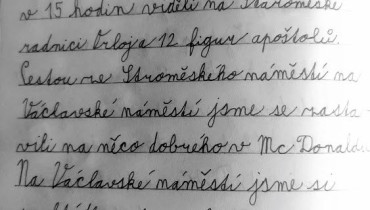 v 15 hodin viděli na Staroměské
radnici Orloja 12 figur apoštolů.
Cestou ze Stroměského náměstí na
Václavské náměstí jsme se zasta-
vili na něco dobrého v Mc Donaldu
Na Václavské náměstí jsme si